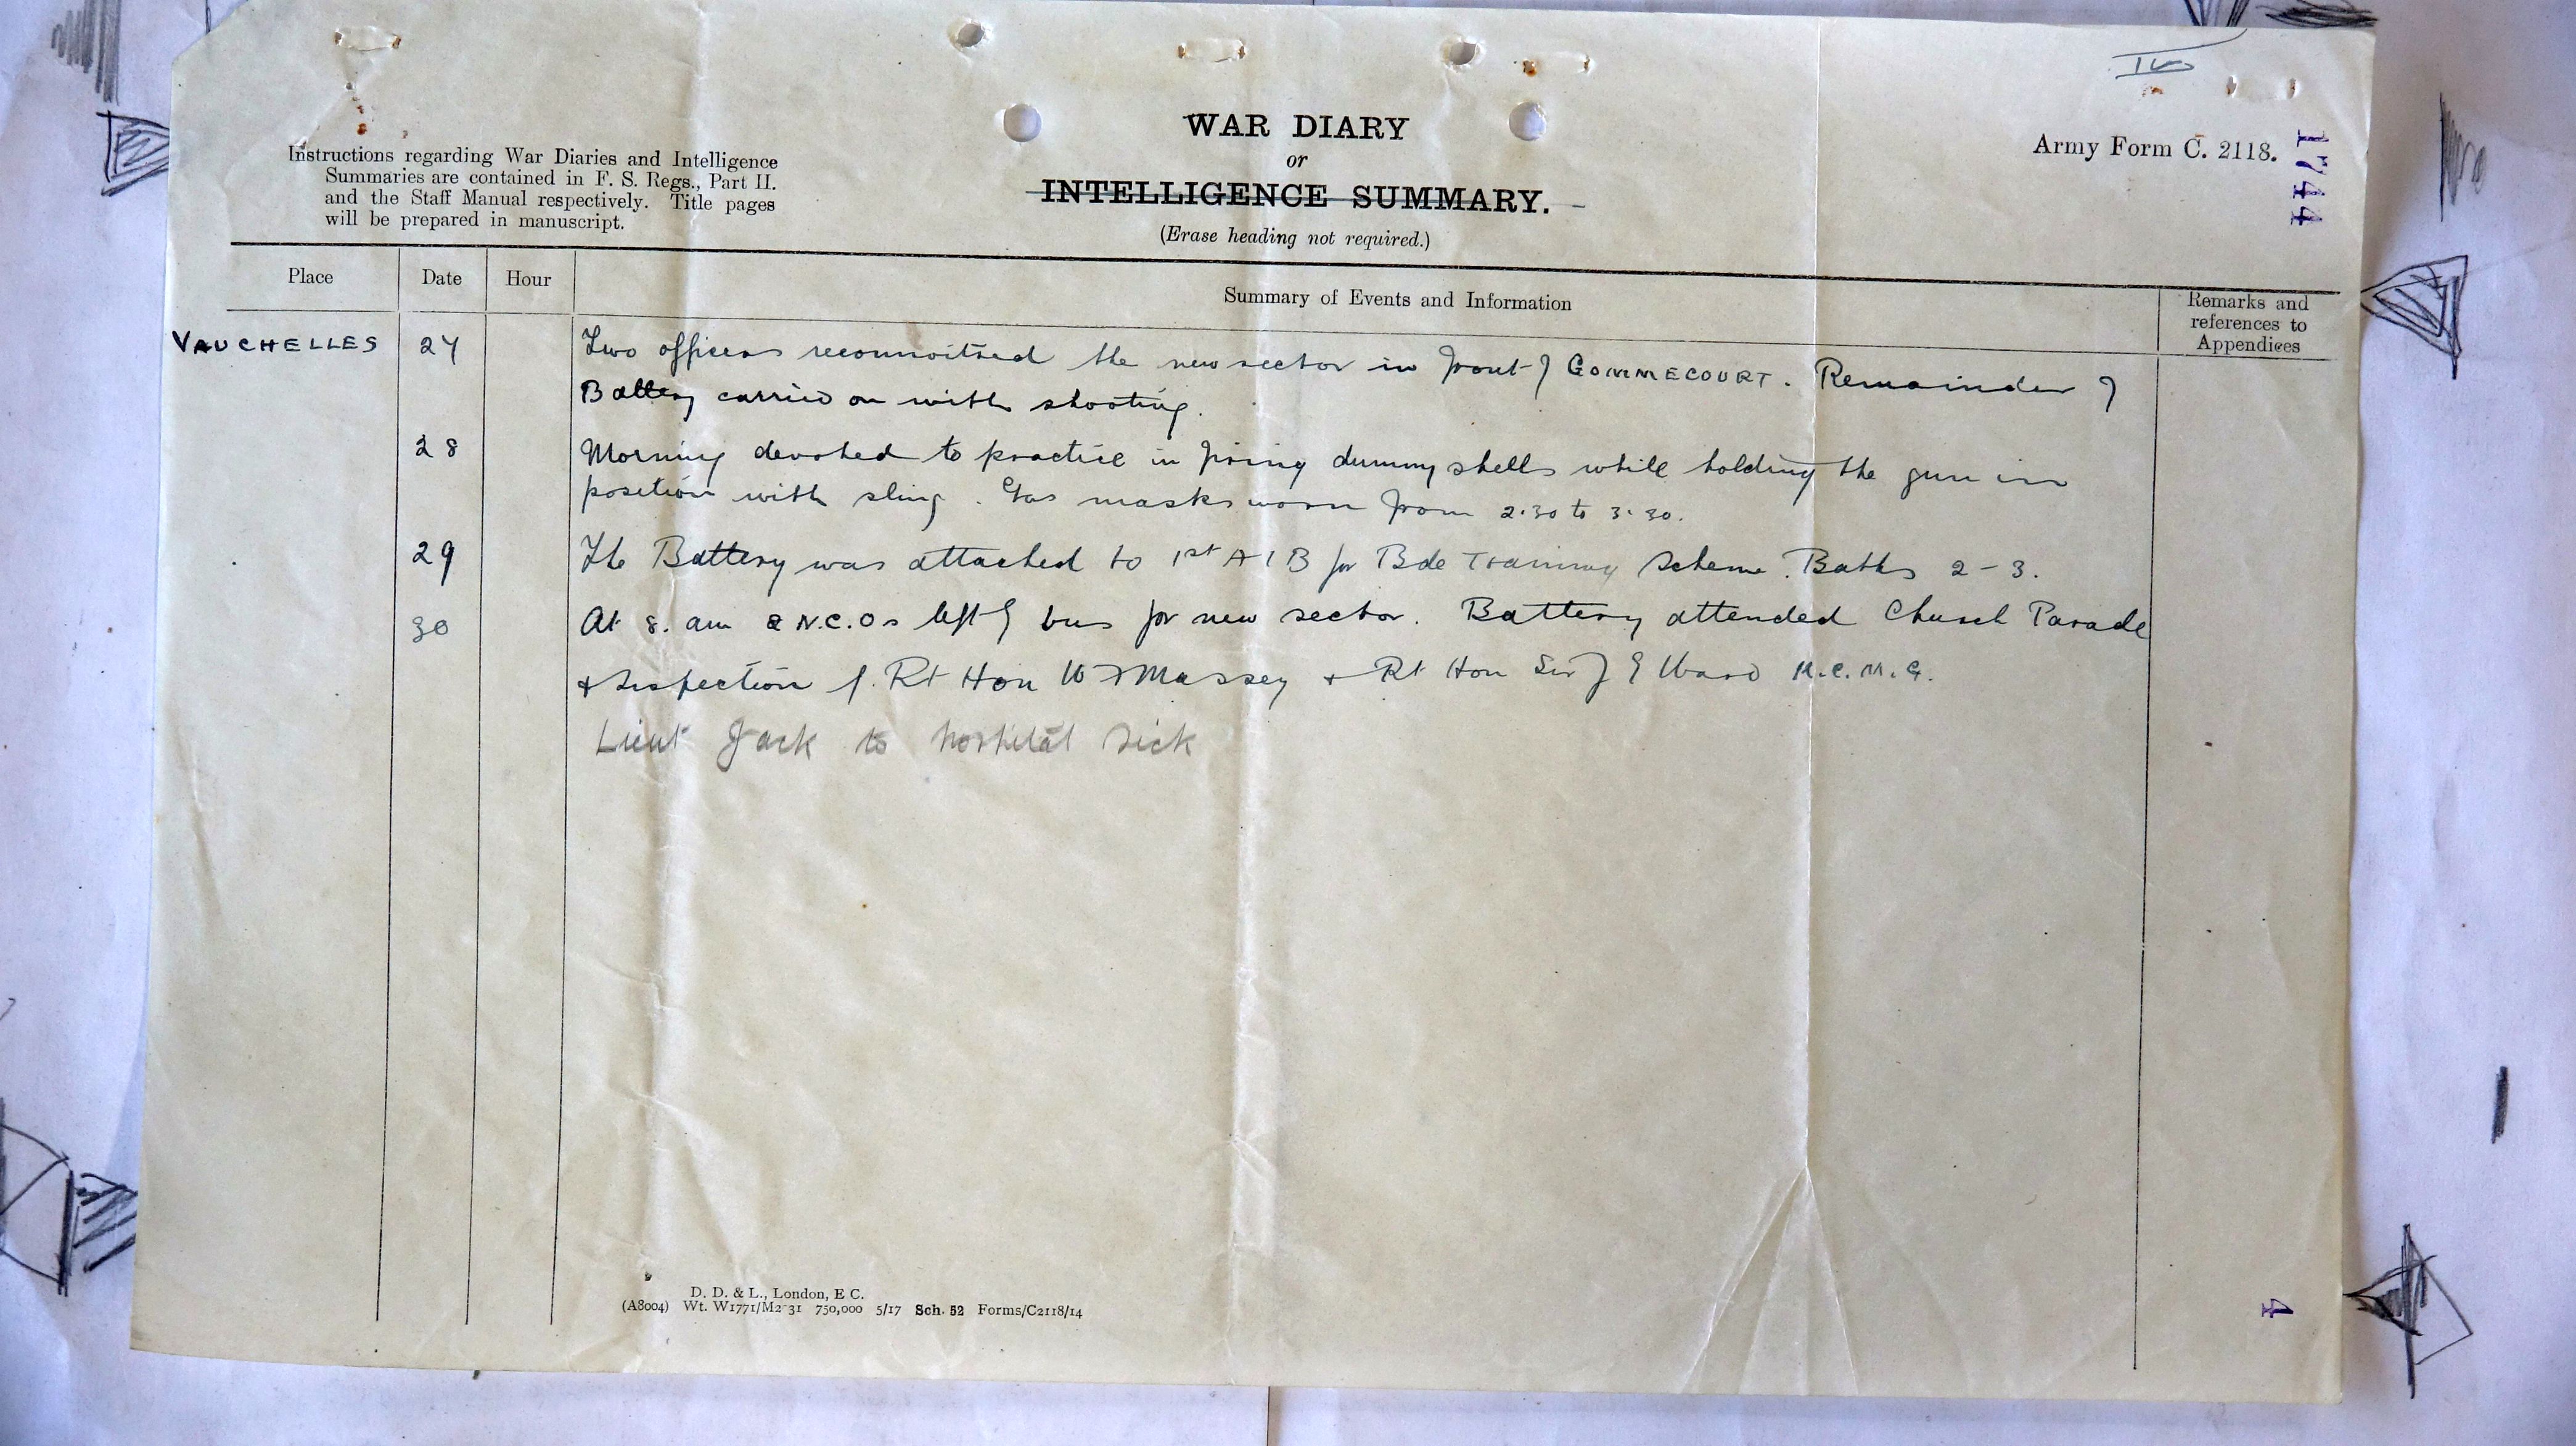 IV
WAR DIARY
or
INTELLIGENCE SUMMARY.
(Erase heading not required.)
Instructions regarding War Diaries and Intelligence
Summaries are contained in F. S. Regs., Part II.
and the Staff Manual respectively. Title pages
will be prepared in manuscript.
Army Form C. 2118.
1744
Place Date Hour Summary of Events and Information Remarks and
references to
Appendices
VAUCHELLES 27 Two officers reconnoitred the new sector in front of GOMMECOURT. Remainder of
Battery carried on with shooting.
28 Morning devoted to practice in firing dummy shells while holding the gun in
position with sling. Gas masks worn from 2.30 to 3.30.
29 The Battery was attached to 1st A I B for Bde Training Scheme. Baths 2-3.
30 At 8. am 2 N.C.Os left by bus for new sector. Battery attended Church Parade
& Inspection by Rt Hon W F Massey & Rt Hon Sir J G Ward K.C.M.G.
Lieut Jack to hospital sick
D. D. & L., London, E C.
(A8004) Wt. W1771/M2 31 750,000 5/17 Sch. 52 Forms/C2118/14
4